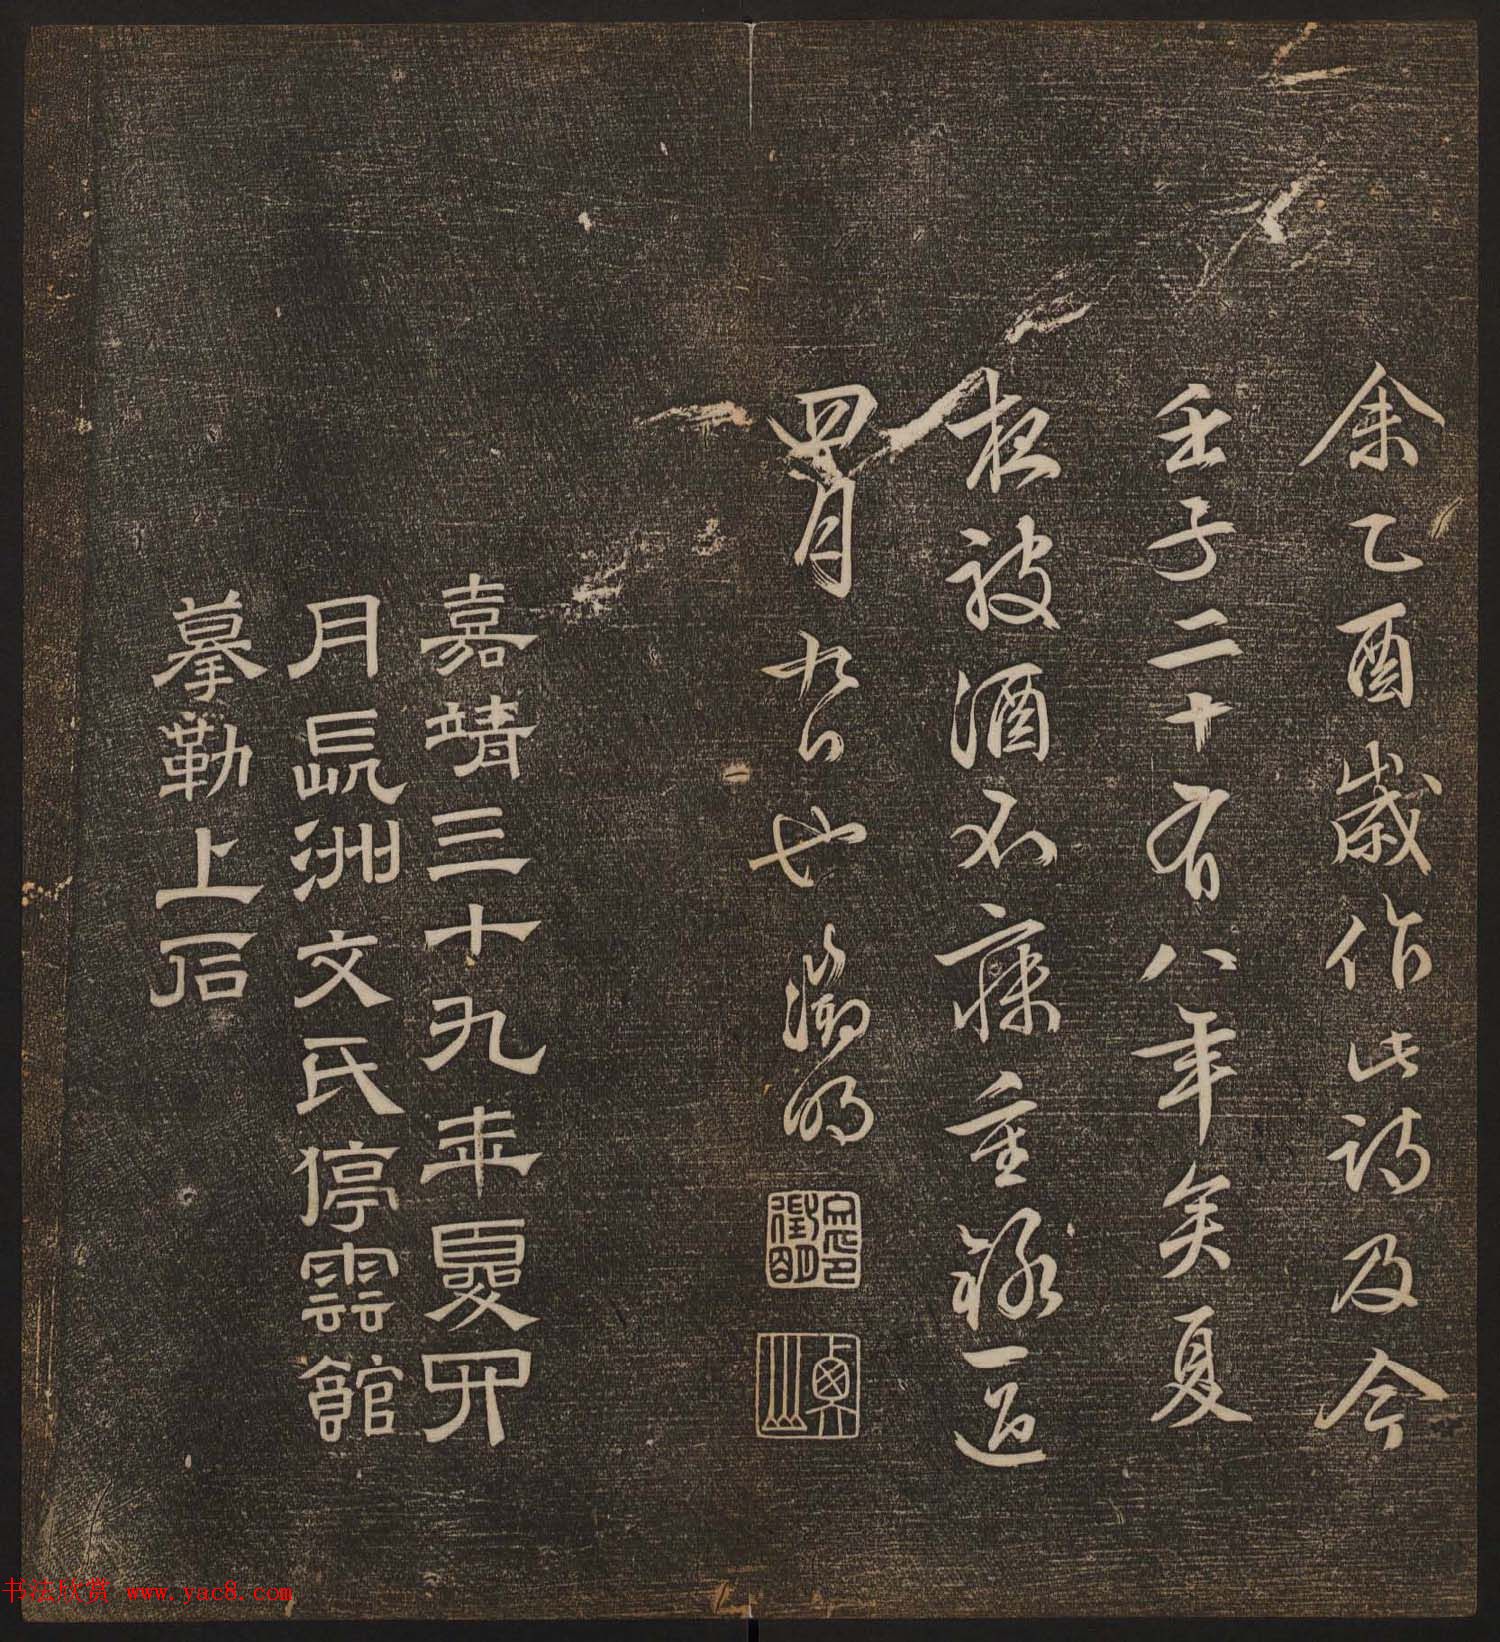 余乙酉歲作此詩及今
壬子二十有八年矣夏
夜被酒不寐重錄一過
四月九日也徵明
嘉靖三十九年夏四
月長洲文氏停雲館
摹勒上石
书法欣赏 www.yac8.com